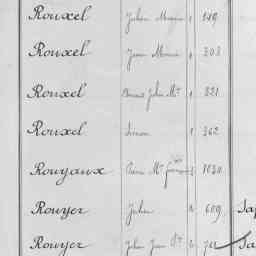 Rouxel Julien Marie 1 149
Rouxel Jean Marie 1 303
Rouxel Julien Mie 1 321
Rouxel Simon 1 362
Rouyaux Pierre Mie 1030
Rouyer Jules 2 609
Rouyer Jules Jean Bte 2